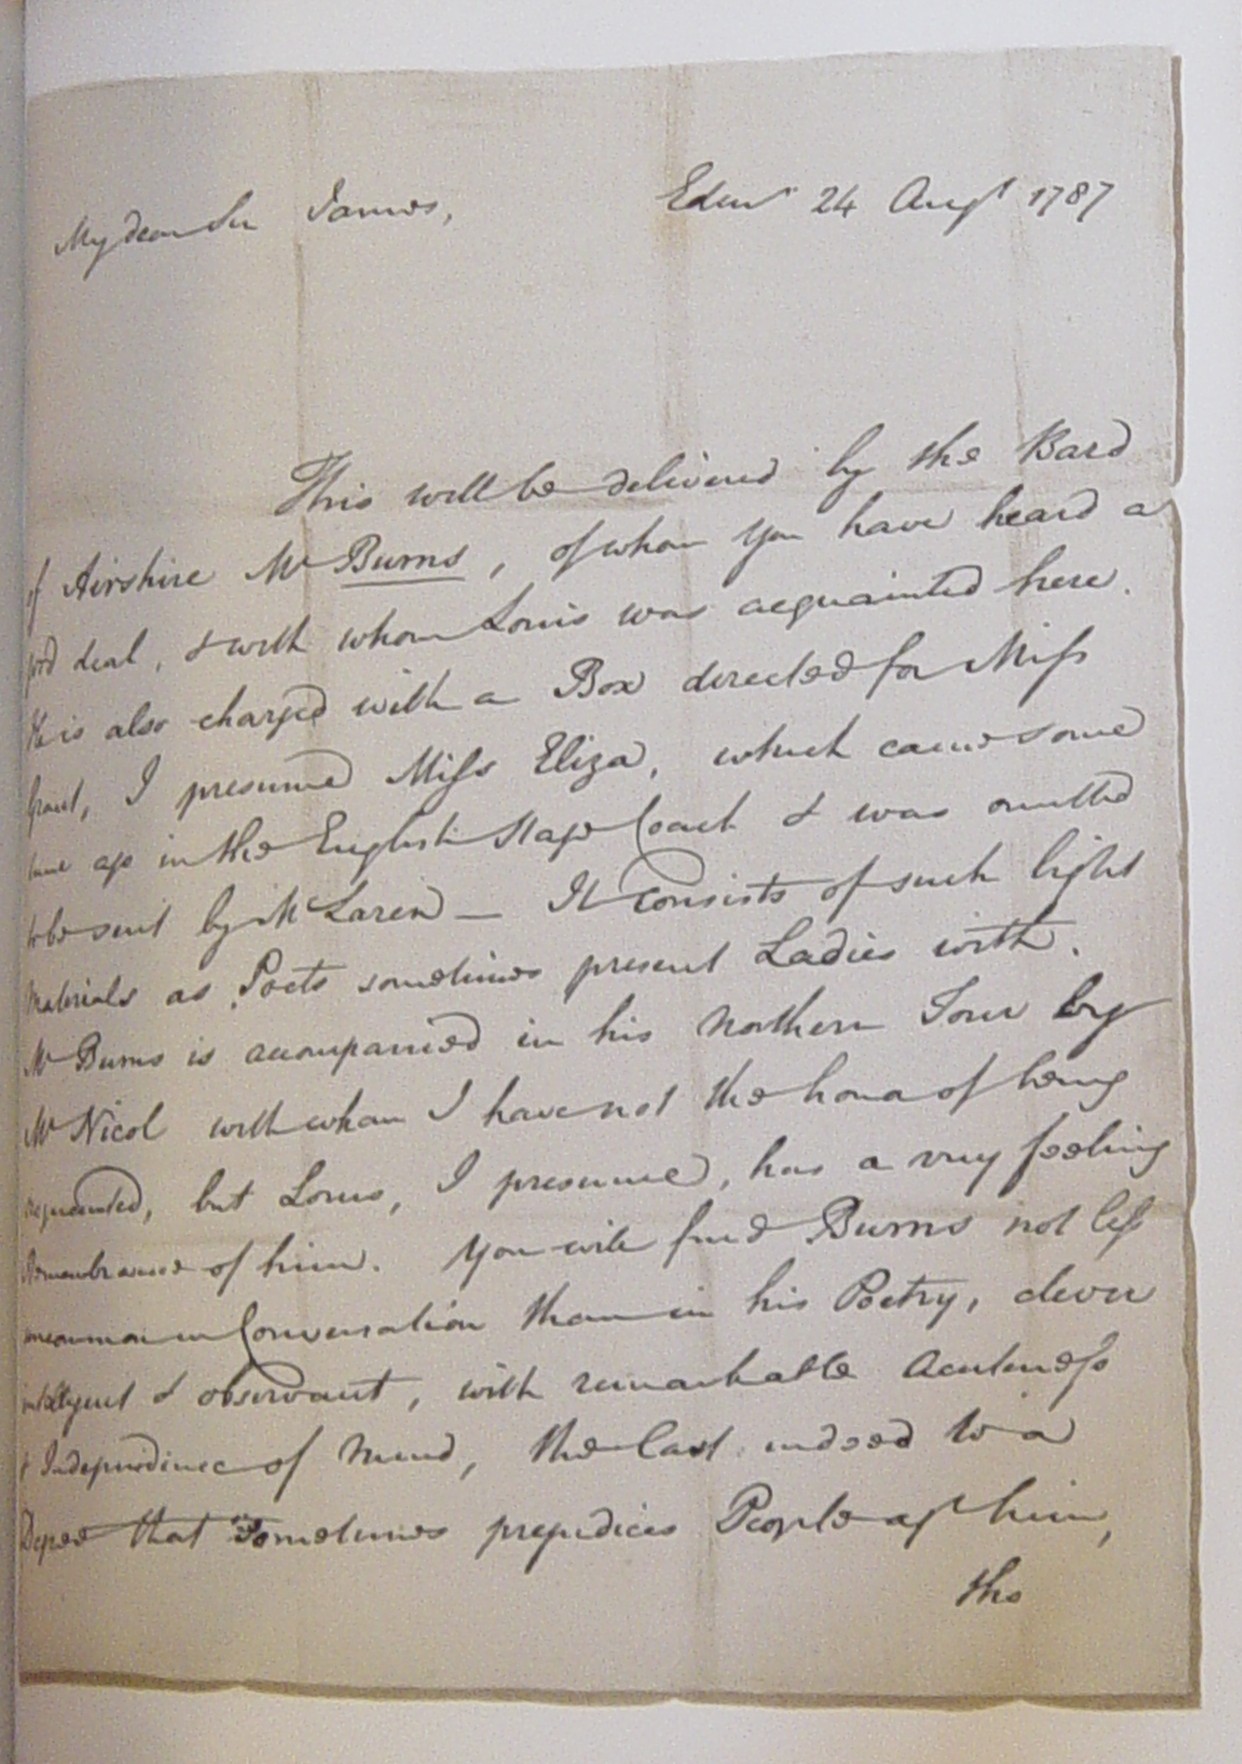 My dear Sir James,
Edinr 24 Augst 1787
This will be delivered by the Bard
of Airshire Mr Burns, of whom you have heard a
good deal, & with whom Louis was acquainted here.
He is also charged with a Box directed for Miss
Grant, I presume Miss Eliza, which came some
time ago in the English Stage Coach & was omitted
to be sent by McLaren — It consists of such light
Materials as Poets sometimes present Ladies with.
Mr Burns is accompanied in his Northern Tour by
Mr Nicol with whom I have not the honor of being
acquainted, but Louis, I presume, has a very feeling
Remembrance of him. You will find Burns not less
uncommon in Conversation than in his Poetry, clever
intelligent & observant, with remarkable Acuteness
& Independence of Mind, the last indeed to a
Degree that sometimes prejudices People agst him,
tho